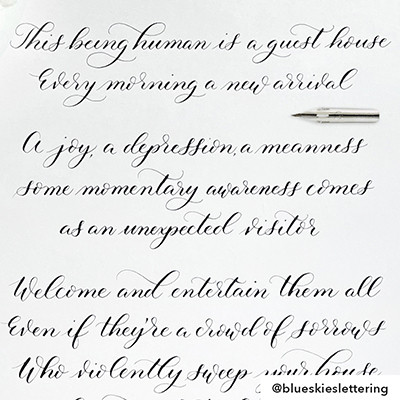 This being human is a guest house
Every morning a new arrival
A joy, a depression, a meanness
some momentary awareness comes
as an unexpected visitor
Welcome and entertain them all
Even if they're a crowd of sorrows
Who violently sweep your house
@blueskieslettering